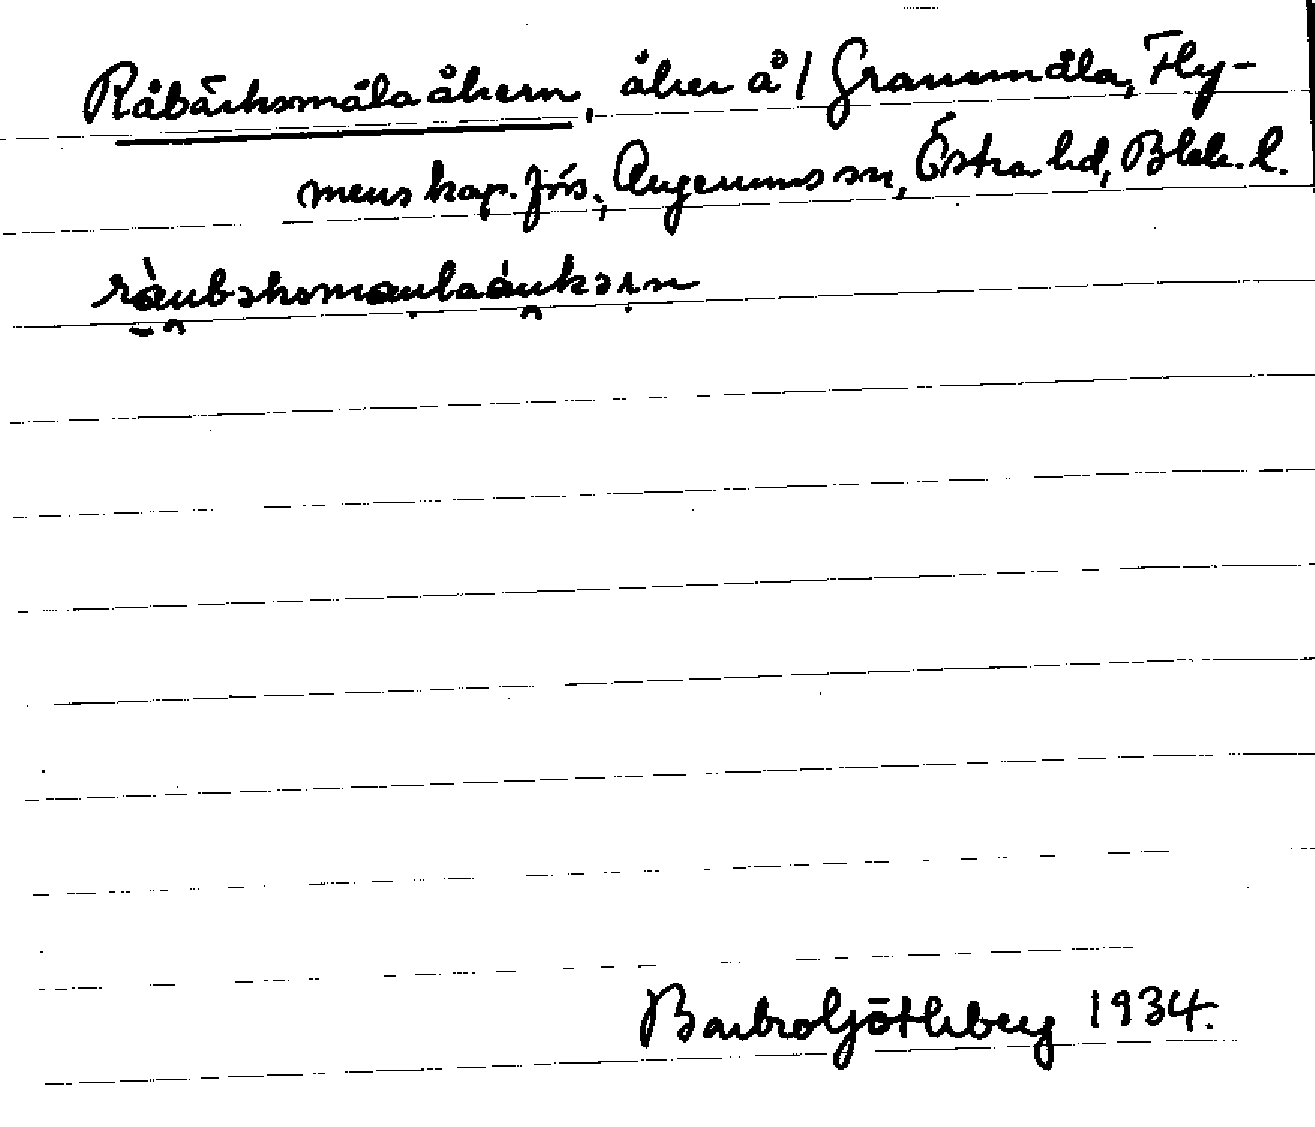 Råbäcksmåla åkern, åker å 1 Grammåla, Fly-
mens kap. förs., Augerums sn, Östra hd, Blek. l.
ràubəksmaulaáukərn
Barbro Göthberg 1934.